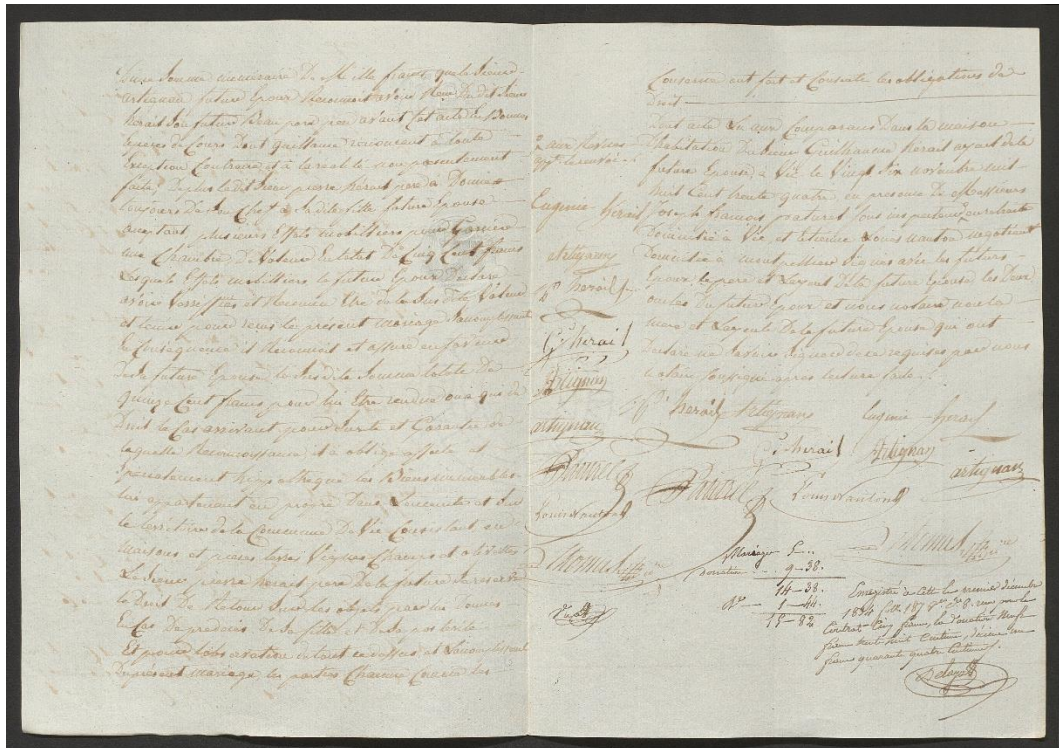 D'une Somme numeraire De Mille francs que le Sieur
artignan futur Epoux Reconnoit avoir Reçu Du dit Sieur
herail Son futur Beau pere peu avant cet acte En Bonnes
Espèces de Cours Dont quittance renonçant à toute
Exception Contraire et à la realle non presentement
faite. De plus ledit Sieur pierre herail pere a Donné
toujours De Son Chef à ladite fille future Epouse
acceptant plusieurs Effets mobilliers pour Garnir
une Chambre De Valeur En total De Cinq Cent francs
Lesquels Effets mobilliers le futur Epoux Declare
avoir et Reconnu Etre de la Susdite Valeur
et tenir pour reçus le present mariage S'accomplissant
En Consequence il Reconnoit et assure En faveur
de sa future Epouse la Susdite Somme totale De
quinze Cent francs pour lui Etre rendue ou à qui de
Droit le Cas arrivant pour Sureté et Garantie de
laquelle Reconnoissance il a obligé affecté et
Specialement hipothequé les Biens immeubles
lui appartenant En propre Dans L'enceinte et Sur
le territoire de la Commune De Vic Consistant en
maisons et pieces terres Vignes Champs et olivettes
Le Sieur pierre herail pere De la future Se reserve
le Droit De Retour Sur les objets par lui Donnés
En Cas De predecès De Sa fille et De Sa posterité
Et pour L'observation de tout ce dessus et L'accomplissement
Du present mariage les parties Chacune Comme les
Concerne ont fait et Consenti les obligations de
Droit
Dont acte Lu aux Comparans Dans la maison
D'habitation du Sieur Guillaume herail ayeul de la
future Epouse à Vic le Vingt Six novembre mil
huit Cent trente quatre, en presence De Messieurs
Joseph françois pratural Sous inspecteur En retraite
Domicilié à Vic, et Etienne Louis nanton negociant
Domicilié à montpellier Signés avec les futurs
Epoux, le pere et L'ayeul De la future Epouse, les Deux
oncles Du futur Epoux et nous notaire non la
mere et L'ayeule De la future Epouse qui ont
Declaré ne Savoir Signer de ce requises par nous
notaire Soussigné après lecture faite.
Eugenie herail
artignan
pre herail
Gme herail
Artignan
artignan
Louis nanton
Thomas
pre herail Artignans Eugenie herail
Gme herail Artignan artignan
Louis nanton
Thomas
Mariage 5 ..
Donation .. 9-38.
14-38.
1-44.
15-82
Enregistré à Cette le premier décembre
1834 fo 187 ro Cse 8. reçu pour le
Contrat Cinq francs, la Donation Neuf
francs trente huit Centimes, décime un
franc quarante quatre Centimes.